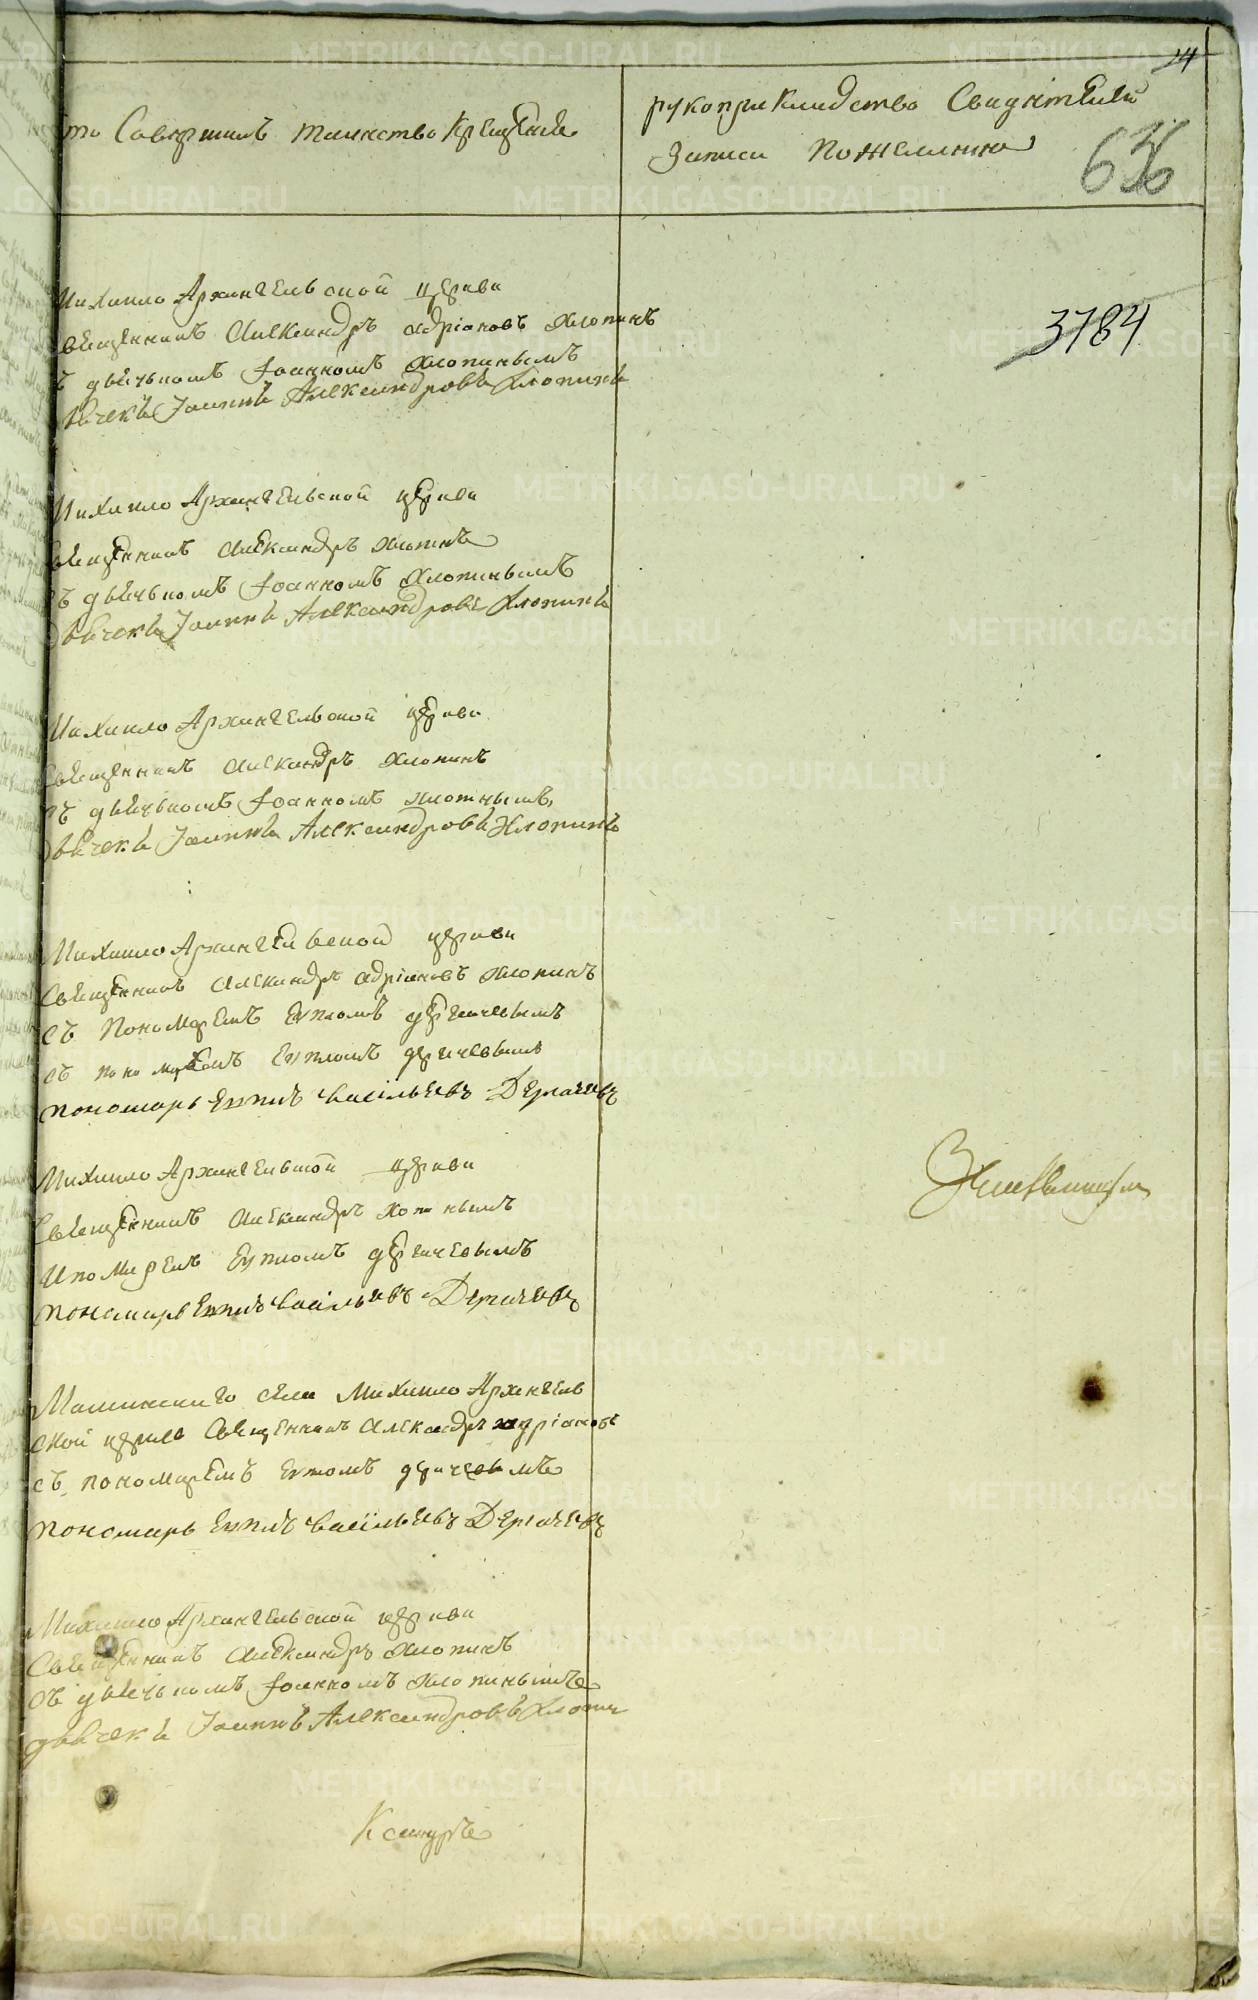 24
то Совершилъ таинство Крещение
рукоприкладство Свидетелей
записи по желанию
636
3784
Михаило Архангельской церкви
священникъ Александръ Адріановъ Хлопинъ
ъ дьячькомъ Іоанномъ Хлопинымъ
дьячекъ Іоаннъ Александровъ Хлопинъ
Михаило Архангельской церкви
священникъ Александръ Хлопинъ
съ дьячькомъ Іоанномъ Хлопинымъ
Дьячекъ Іоаннъ Александровъ Хлопинъ
Михаило Архангельской церкви
Священникъ Александръ Хлопинъ
съ дьячькомъ Іоанномъ Хлопинымъ
Дьячекъ Іоаннъ Александровъ Хлопинъ
Михаило Архангельской церкви
Священникъ Александръ Адріановъ Хлопинъ
съ пономаремъ Евпломъ Дергачевымъ
съ пономаремъ Евпломъ Дергачевымъ
пономарь Евплъ Васільевъ Дергачевъ
Михаило Архангельской церкви
Священникъ Александръ
Евпломъ Дергачевымъ
пономарь Евплъ Васільевъ Дергачевъ
села Михаило Архангель
ской церкви Священникъ Александръ Адріановъ
съ пономаремъ Евпломъ
пономарь Евплъ Васільевъ Дергачевъ
Михаило Архангельской церкви
Священникъ Александръ Хлопинъ
съ дьячькомъ Іоанномъ Хлопинымъ
дьячекъ Іоаннъ Александровъ Хлопин